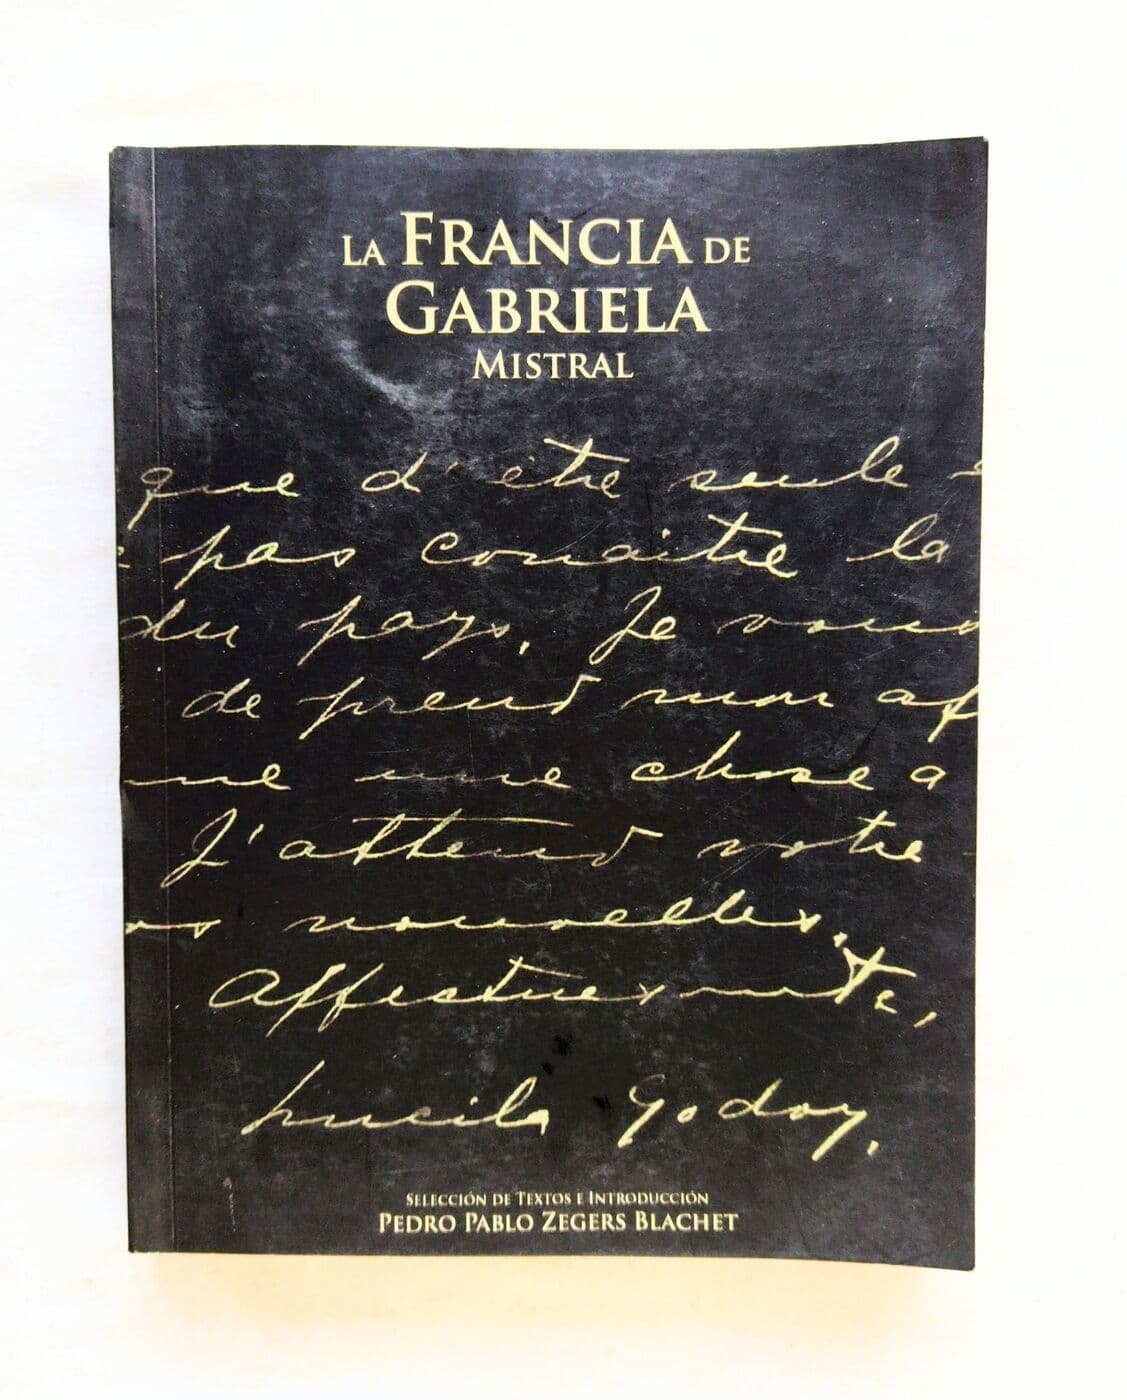 LA FRANCIA DE
GABRIELA
MISTRAL
que d'être seule
pas conaitre la
du pays. Je vous
de prend mon af
me une chose a
J'attend votre
os nouvelles.
Affectuesmte,
Lucila Godoy.
SELECCIÓN DE TEXTOS E INTRODUCCIÓN
PEDRO PABLO ZEGERS BLACHET